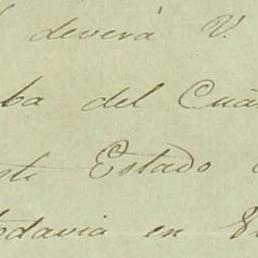 deverá V.
ba del Cua
este Estado
todavia en